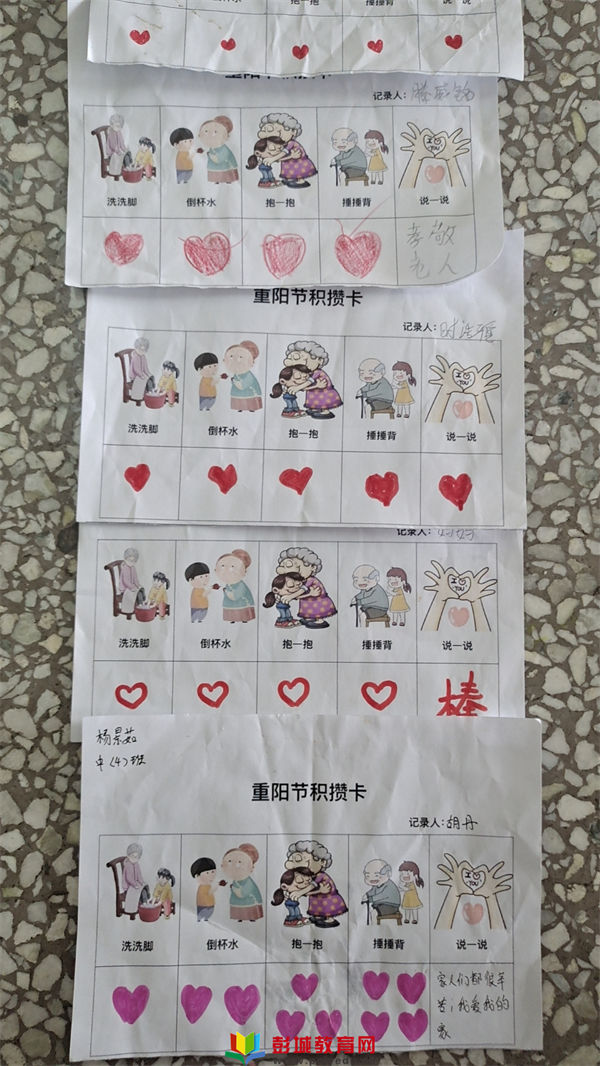 说一说
记录人：
洗洗脚 倒杯水 抱一抱 捶捶背 说一说
孝敬
老人
重阳节积攒卡
记录人：
洗洗脚 倒杯水 抱一抱 捶捶背 说一说
记录人：妈妈
洗洗脚 倒杯水 抱一抱 捶捶背 说一说
棒
杨景茹
中（4）班
重阳节积攒卡
记录人：胡丹
洗洗脚 倒杯水 抱一抱 捶捶背 说一说
家人们都很辛
苦，我爱我的
家
彭城教育网